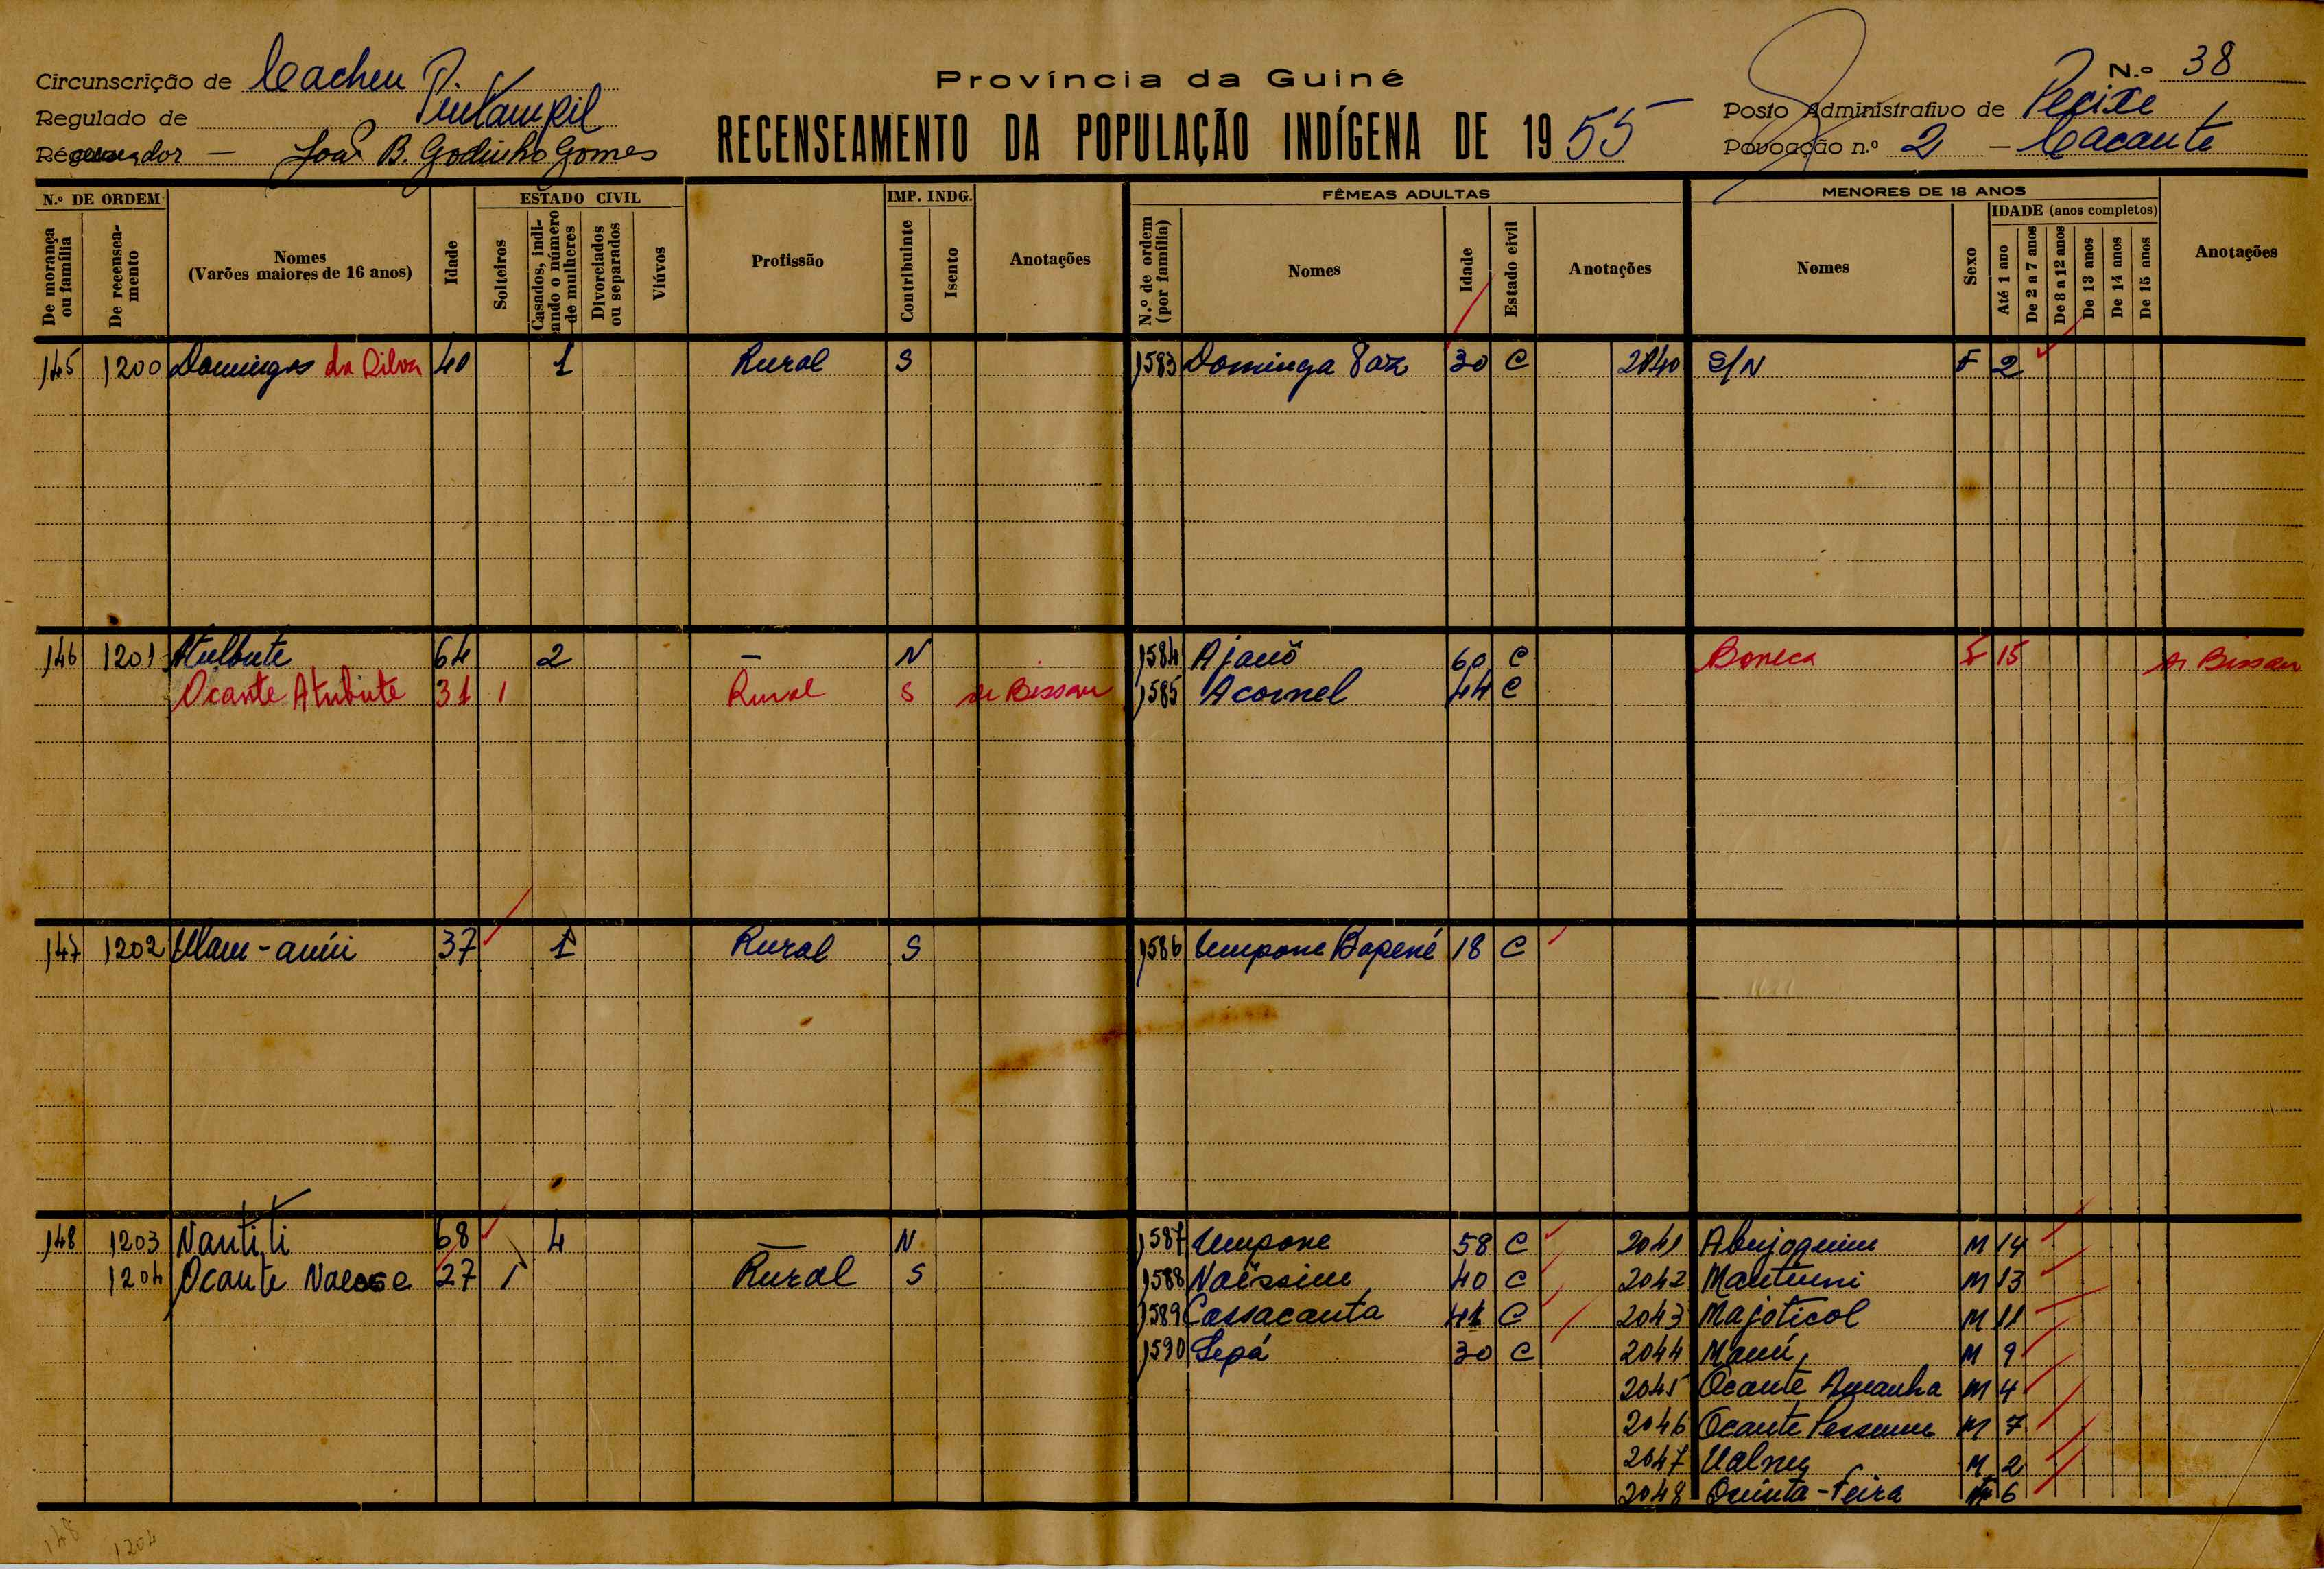 Província da Guiné
RECENSEAMENTO DA POPULAÇÃO INDÍGENA DE 1955
Circunscrição de Cacheu
Regulado de
João B. Godinho Gomes
N.º 38
Posto Administrativo de Pecixe
Povoação n.º 2 - Cacante
N.º DE ORDEM
De morança ou família
De recenseamento
Nomes
(Varões maiores de 16 anos)
Idade
ESTADO CIVIL
Solteiros
Casados, indicando o número de mulheres
Divorciados ou separados
Viúvos
Profissão
IMP. INDG.
Contribuinte
Isento
Anotações
FÊMEAS ADULTAS
N.º de ordem (por família)
Nomes
Idade
Estado civil
Anotações
MENORES DE 18 ANOS
Nomes
Sexo
IDADE (anos completos)
Até 1 ano
De 2 a 7 anos
De 8 a 12 anos
De 13 anos
De 14 anos
De 15 anos
Anotações
145 1200 Domingos da Silva 40 1 Rural S 1583 Dominga Vaz 30 C 2040 S/N F 2
146 1201 64 2 — N 1584 Ajanô 60 C Boneca F 15 Bissau
Ocante Atubute 31 1 Rural S Bissau 1585 Acornel 44 C
147 1202 37 1 Rural S 1586 Umpone Bapené 18 C
148 1203 Nantiti 68 4 — N 1587 Umpone 58 C 2041 Abujoquim M 14
1204 Ocante 27 1 Rural S 1588 Naissim 40 C 2042 M 13
1589 Cassacanta C 2043 Majoticol M 11
1590 Sepá 30 C 2044 Manú M 9
2045 Ocante Amanha M 4
2046 Ocante M 7
2047 M 2
2048 Quinta-Feira 6
148 1204